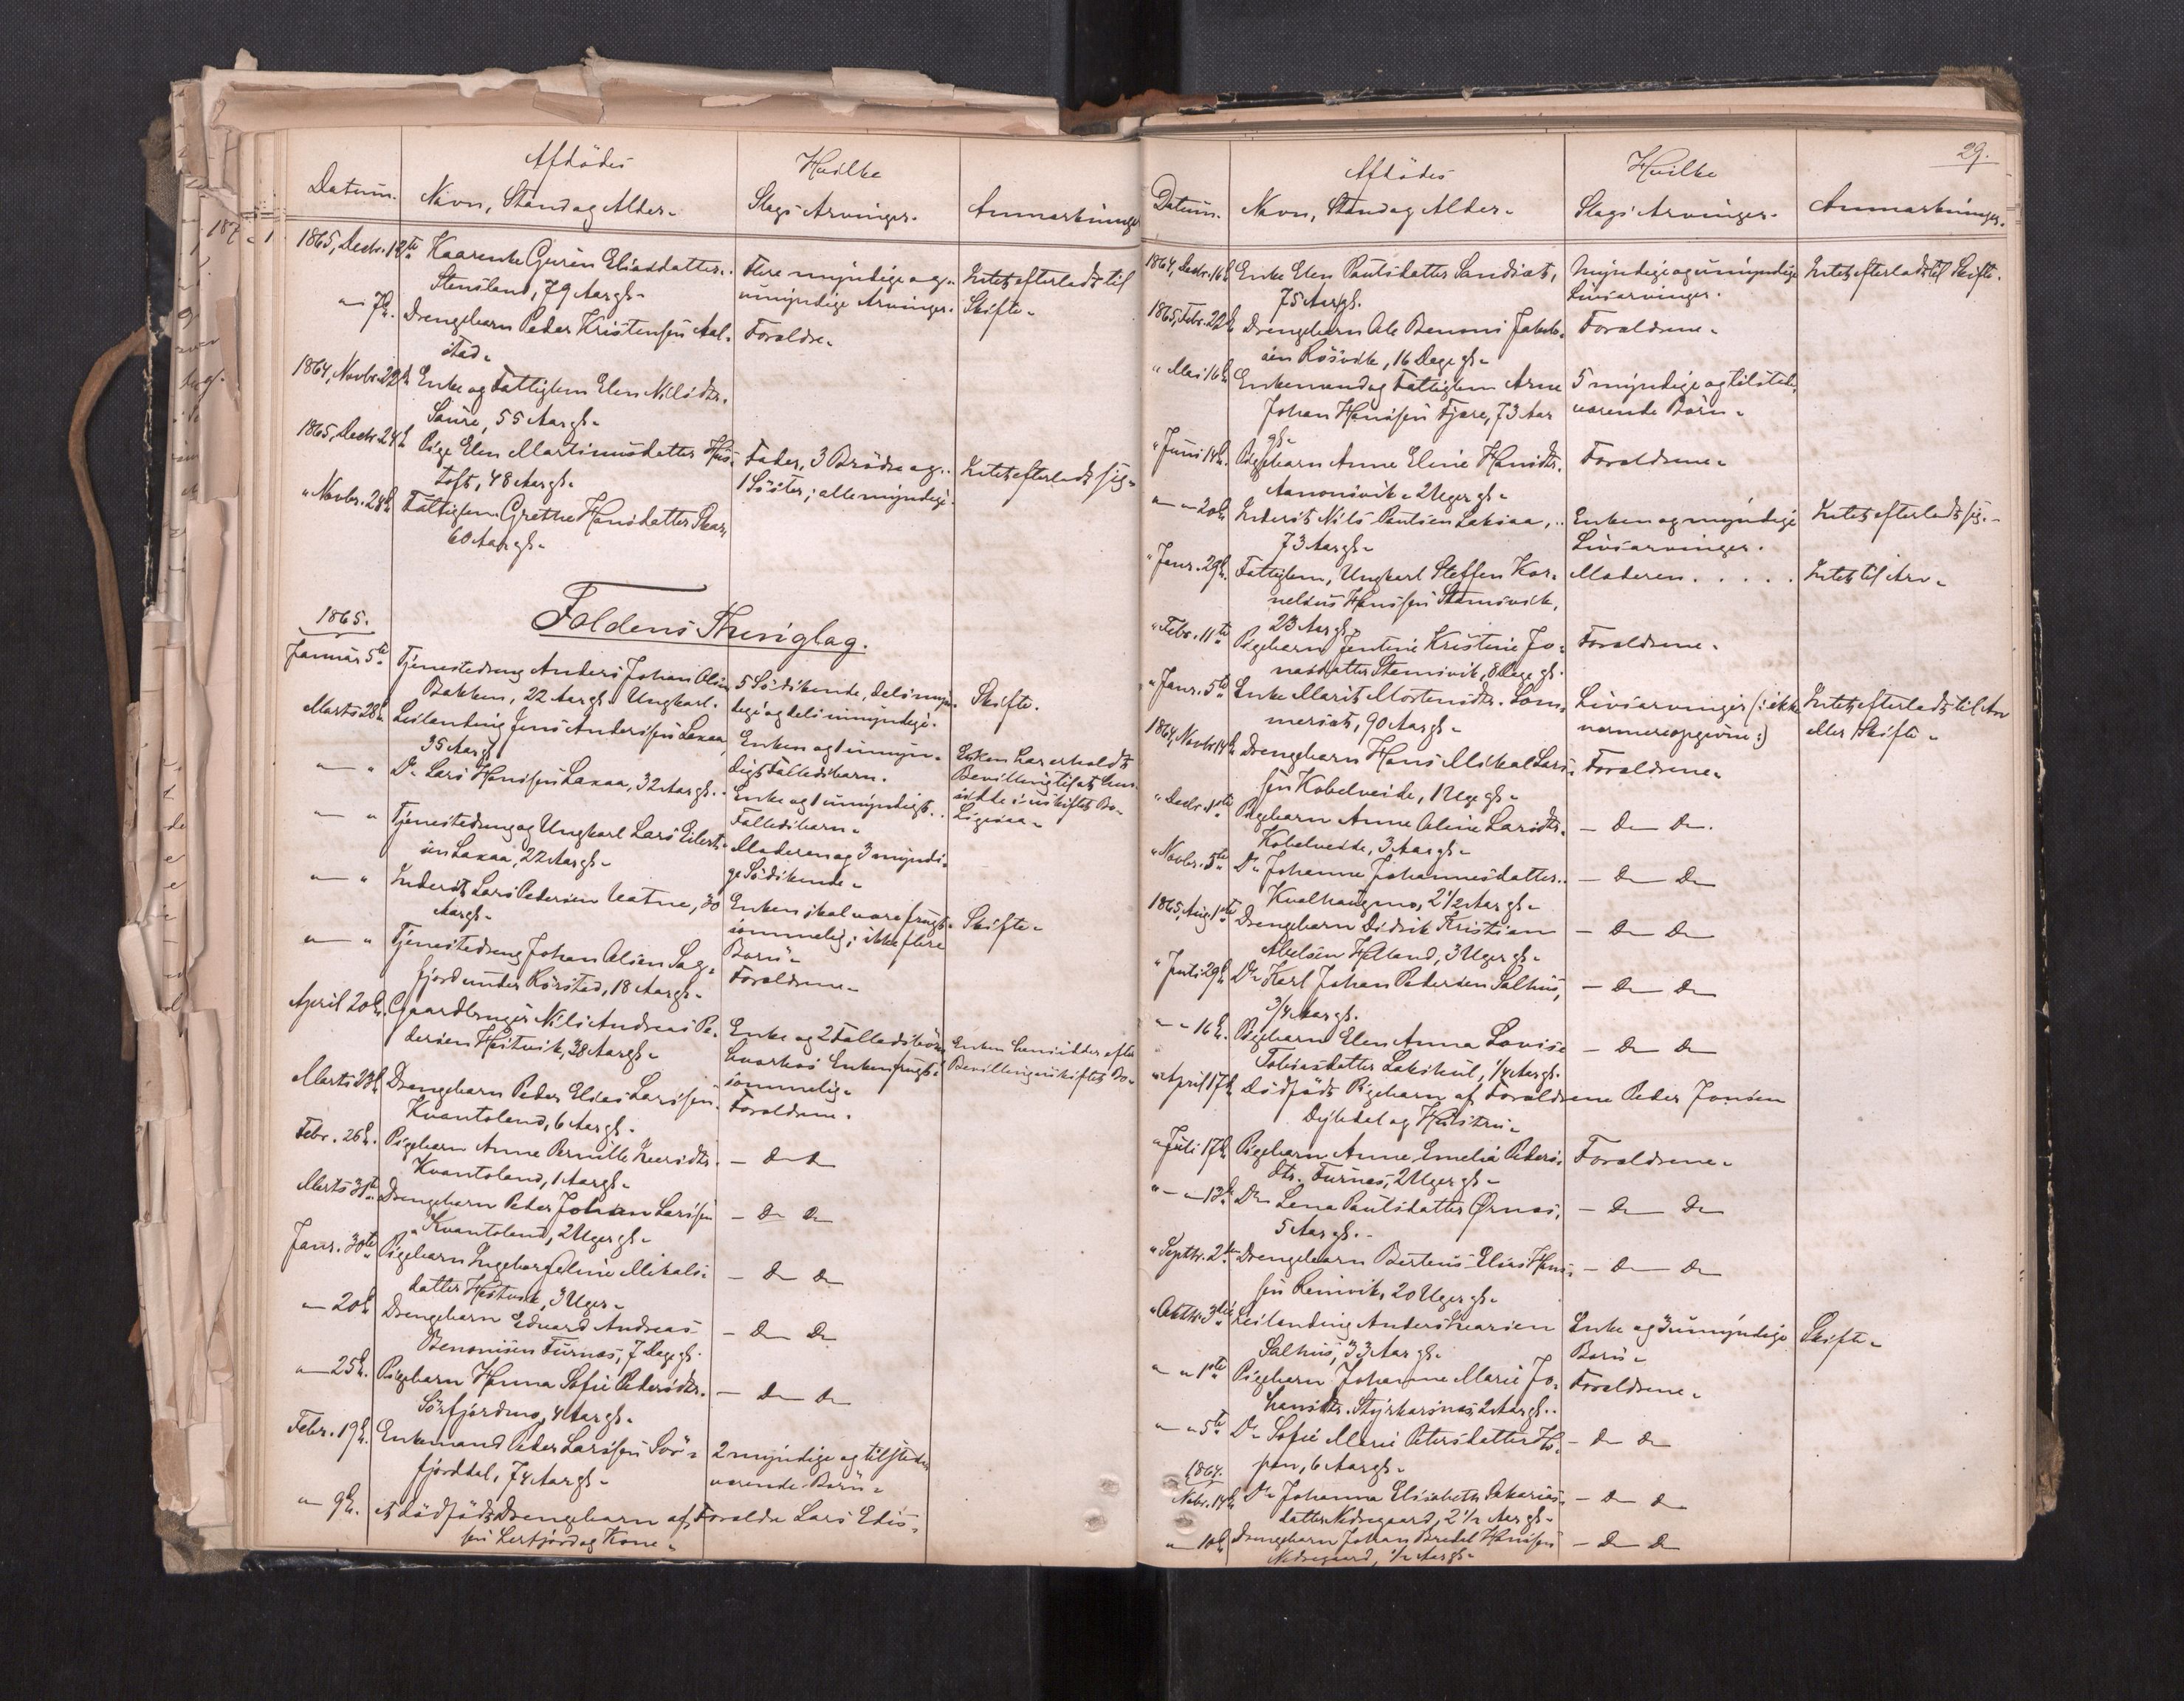 Datum.
Afdödes
Navn, Stand og Alder.
Hvilke
Slags Arvinger.
Anmærkninger
1865, Decbr. 12te Kaarenke Gurin Eliasdatter
Stensland, 79 Aar gl.
Flere myndige og
umyndige Arvinger.
Intet efterladt til
Skifte.
" 7de. Drengebarn Peder Kristensen Aal-
stad.
Forældre.
1864, Novbr. 22de Enke og Fattiglem Elen Nilsdtr.
Saure, 55 Aar gl.
1865, Decbr. 24de Pige Elen Martinusdatter Hus-
toft, 48 Aar gl.
Fader, 3 Brödre og
1 Söster; alle myndige.
Intet efterladt sig.
" Novbr. 28de Fattiglem Grethe Hansdatter Skar
60 Aar gl.
Foldens Thinglag.
1865.
Januar 5te Tjenestedreng Anders Johan Olsen
Bakken, 22 Aar gl. Ungkarl.
5 Södskende, dels myn-
dige og dels umyndige.
Skifte.
Marts 28de Leilænding Jens Andersen Laxaa,
35 Aar gl.
Enken og 1 umyn-
digt Fællesbarn.
Enken har erholdt
Bevilling til at hen-
sidde i uskiftet Bo.
" " Do Lars Hansen Laxaa, 32 Aar gl.
Enke og 1 umyndigt
Fællesbarn.
Ligesaa.
" " Tjenestedreng og Ungkarl Lars Eilert-
sen Laxaa, 22 Aar gl.
Moderen og 3 myndi-
ge Södskende.
" " Inderst Lars Pedersen Vatne, 30
Aar gl.
Enken skal være frugt-
sommelig; ikke flere
Börn.
Skifte.
" " Tjenestedreng Johan Olsen Sag-
fjord under Rörstad, 18 Aar gl.
Forældrene.
April 20de. Gaardbruger Nils Andreas Pe-
dersen Hestvik, 38 Aar gl.
Enke og 2 Fællesbörn
hvorhos Enken frugt-
sommelig.
Enken hensidder efter
Bevilling i uskiftet Bo.
Marts 23de Drengebarn Peder Elias Larssen
Kvantoland, 6 Aar gl.
Forældrene.
Febr. 26de. Pigebarn Anne Pernille Iversdtr.
Kvantoland, 1 Aar gl.
— Do Do
Marts 31te Drengebarn Peder Johan Larssen
Kvantoland, 2 Uger gl.
— Do Do
Janr. 30te Pigebarn Ingeborg Oline Mikals-
datter Hestvik, 3 Uger.
— Do Do
" 20de Drengebarn Edvard Andreas
Benonisen Furnæs, 7 Dage gl.
— Do Do
" 25de. Pigebarn Hanna Sofie Pedersdtr.
Sörfjordmo, 4 Aar gl.
— Do Do
Febr. 19de. Enkemand Peder Larssen Sör-
fjorddal, 74 Aar gl.
2 myndige og tilstede-
værende Börn.
" 9de. et dödfödt Drengebarn af Forældre Lars Edis-
sen Lerfjord og Kone.
29.
Datum.
Afdödes
Navn, Stand og Alder.
Hvilke
Slags Arvinger.
Anmærkninger.
1864, Decbr. 16de Enke Elen Paulsdatter Sandsæt,
75 Aar gl.
Myndige og umyndige
Livsarvinger.
Intet efterladt til Skifte.
1865, Febr. 22de Drengebarn Ole Benoni Jakob-
sen Rösvik, 16 Dage gl.
Forældrene.
" Mai 16de Enkemand og Fattiglem Arne
Johan Hanssen Fjære, 73 Aar
gl.
5 myndige og tilstede-
værende Börn.
" Juni 14de. Pigebarn Anne Eline Hansdtr.
Aanonsvik, 2 Uger gl.
Forældrene.
" " 20de Inderst Nils Paulsen Laksaa,
73 Aar gl.
Enken og myndige
Livsarvinger.
Intet efterladt sig.
" Janr. 29de. Fattiglem, Ungkarl Steffen Kor-
nelius Hanssen Stamsvik,
23 Aar gl.
Moderen . . . . .
Intet til Arv.
" Febr. 11te Pigebarn Jentine Kristine Jo-
nasdatter Stemsvik, 8 Dage gl.
Forældrene.
" Janr. 5te Enke Marit Mortensdtr. Som-
mersæt, 90 Aar gl.
Livsarvinger (: ikke
nærmere opgivne :)
Intet efterladt til Arv
eller Skifte.
1864, Novbr. 14de Drengebarn Hans Mikal Lars-
sen Kobelveide, 1 Uge gl.
Forældrene.
" Decbr. 1ste Pigebarn Anne Oline Larsdtr.
Kobelveide, 3 Aar gl.
— Do Do.
" Novbr. 5te Do Johanne Johannesdatter
Kvalhaugmo, 2 1/2 Aar gl.
— Do Do
1865, Aug. 1ste Drengebarn Didrik Kristian
Abelsen Helland, 3 Uger gl.
— Do Do
" Juli 29de Do Karl Johan Pedersen Salhus,
3/4 Aar gl.
— Do Do
" " 16de. Pigebarn Elen Anna Lovise
Tobiasdatter Lakshul, 1/4 Aar gl.
— Do Do
" April 17de Dödfödt Pigebarn af Forældrene Peder Jonsen
Djybdal og Hustru.
" Juli 17de Pigebarn Anne Emelie Peders-
dtr. Furnes, 2 Uger gl.
Forældrene.
" " 13de Do Lena Paulsdatter Ørnæs,
5 Aar gl.
— Do Do
" Septbr. 2den Drengebarn Berteus Elias Hans-
sen Leinvik, 20 Uger gl.
— Do Do
" Oktbr. 3die Leilænding Anders Ivarsen
Salhus, 33 Aar gl.
Enke og 3 umyndige
Börn.
Skifte.
" " 1ste Pigebarn Johanne Marie Jo-
hansdtr. Styrkarsnæs, 2 Aar gl.
Forældrene.
" " 5te Do Sofie Marie Petersdatter Ho-
pen, 6 Aar gl.
— Do Do
1864.
Novbr. 14de Do Johanna Elisabeth Sakarias-
datter Nedregaard, 2 1/2 Aar gl.
— Do Do
" 10de Drengebarn Johan Bredal Hanssen
Nedregaard, 1/2 Aar gl.
— Do Do